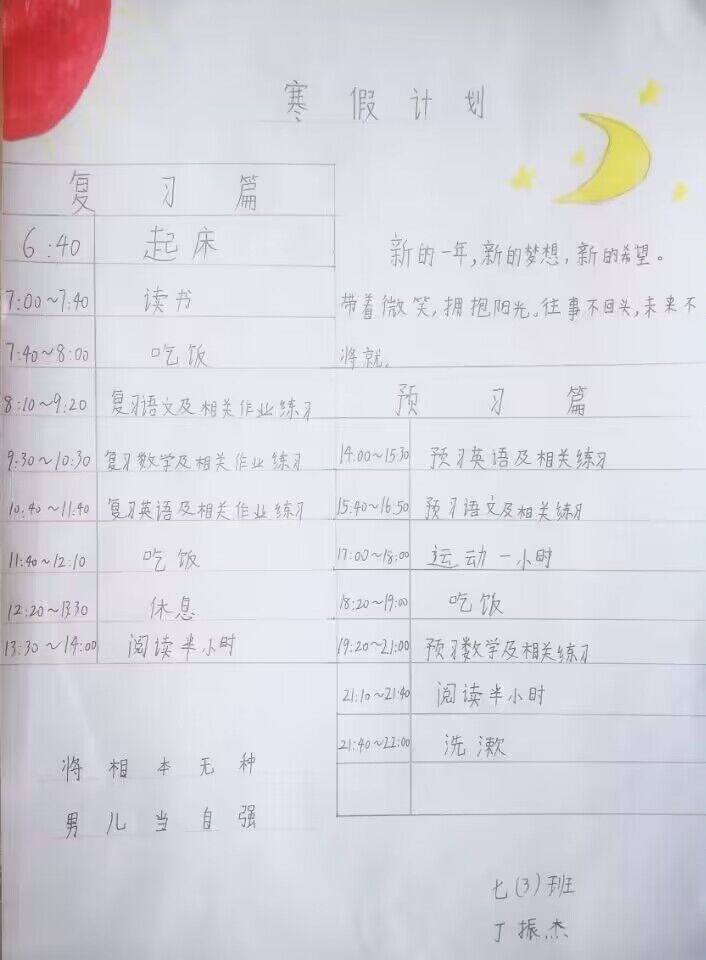 寒假计划
复习篇
6:40 起床
7:00~7:40 读书
7:40~8:00 吃饭
8:10~9:20 复习语文及相关作业练习
9:30~10:30 复习数学及相关作业练习
10:40~11:40 复习英语及相关作业练习
11:40~12:10 吃饭
12:20~13:30 休息
13:30~14:00 阅读半小时
将相本无种
男儿当自强
新的一年,新的梦想,新的希望。
带着微笑,拥抱阳光。往事不回头,未来不
将就.
预习篇
14:00~15:30 预习英语及相关练习
15:40~16:50 预习语文及相关练习
17:00~18:00 运动一小时
18:20~19:00 吃饭
19:20~21:00 预习数学及相关练习
21:10~21:40 阅读半小时
21:40~22:00 洗漱
七(3)班
丁振杰